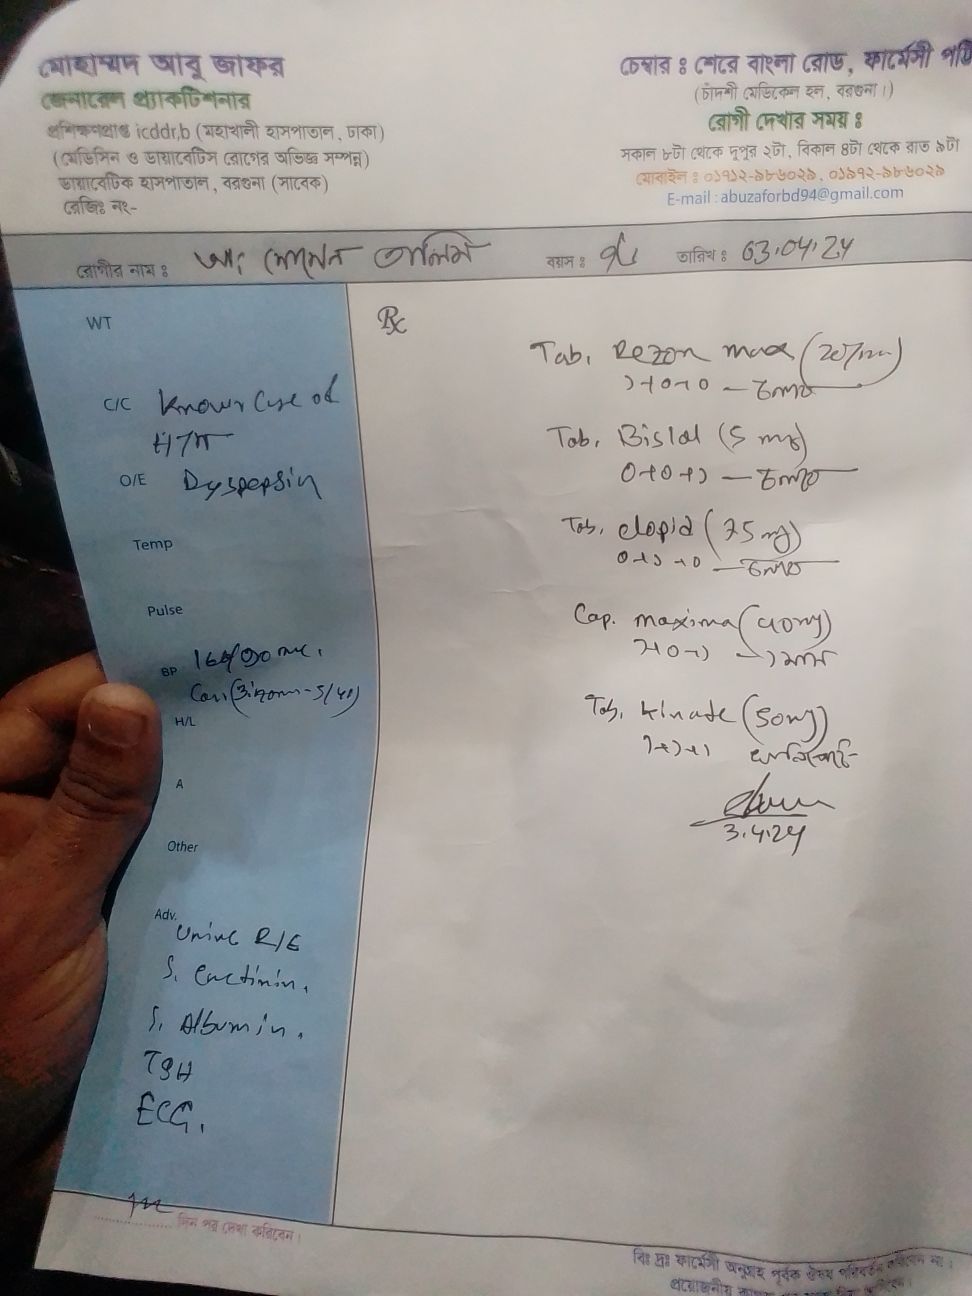 মোহাম্মদ আবু জাফর
জেনারেল প্র্যাকটিশনার
প্রশিক্ষণপ্রাপ্ত icddr,b (মহাখালী হাসপাতাল, ঢাকা)
(মেডিসিন ও ডায়াবেটিস রোগের অভিজ্ঞ সম্পন্ন)
ডায়াবেটিক হাসপাতাল, বরগুনা (সাবেক)
রেজিঃ নং-
চেম্বার : শেরে বাংলা রোড, ফার্মেসী পট্টি
(চাঁদশী মেডিকেল হল, বরগুনা।)
রোগী দেখার সময় :
সকাল ৮টা থেকে দুপুর ২টা, বিকাল ৪টা থেকে রাত ৯টা
মোবাইল : ০১৭১২-৯৮৬০২৯, ০১৯১২-৯৮৬০২৯
E-mail : abuzaforbd94@gmail.com
রোগীর নাম :
বয়স :
তারিখ : 03.04.24
WT
C/C Known Case of
HTN
O/E Dyspepsia
Temp
Pulse
BP
H/L
A
Other
Adv.
Urine R/E
S. Creatinin.
S. Albumin.
TSH
ECG.
দিন পর দেখা করিবেন।
Rx
Tab. Rezon max (20/mg)
১+০+০ — চলবে
Tab. Bislol (5 mg)
০+০+১ — চলবে
Tab. clopid (75 mg)
০+১+০ — চলবে
Cap. maxima (40mg)
১+০+১ — ১ মাস
Tab. (50mg)
১+১+১
3.4.24
বিঃ দ্রঃ ফার্মেসী অনুগ্রহ পূর্বক ঔষধ পরিবর্তন করিবেন না।